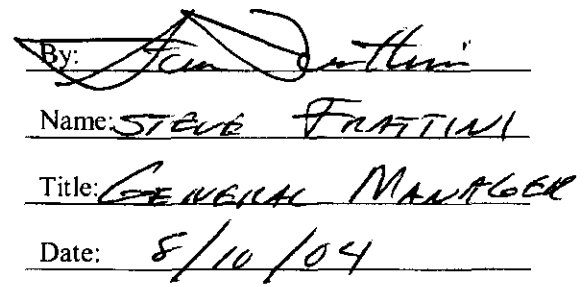 By:
Name: STEVE FRATTINI
Title: GENERAL MANAGER
Date: 8/10/04